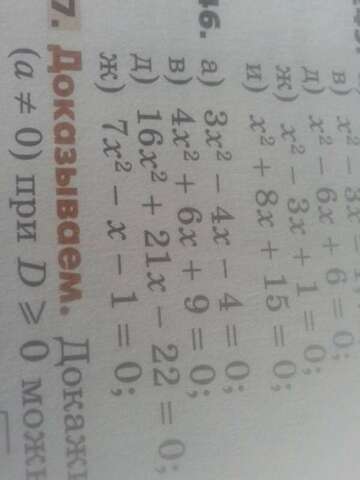 в) x² − 3x
д) x² − 6x + 6 = 0;
ж) x² − 3x + 1 = 0;
и) x² + 8x + 15 = 0;
46. а) 3x² − 4x − 4 = 0;
в) 4x² + 6x + 9 = 0;
д) 16x² + 21x − 22 = 0;
ж) 7x² − x − 1 = 0;
7. Доказываем. Докажи
(a ≠ 0) при D ⩾ 0 можн